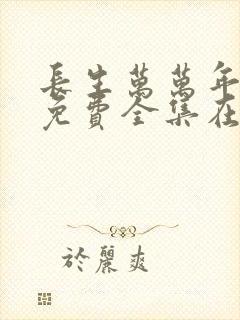 長生萬萬年
免費全集在
於麗爽